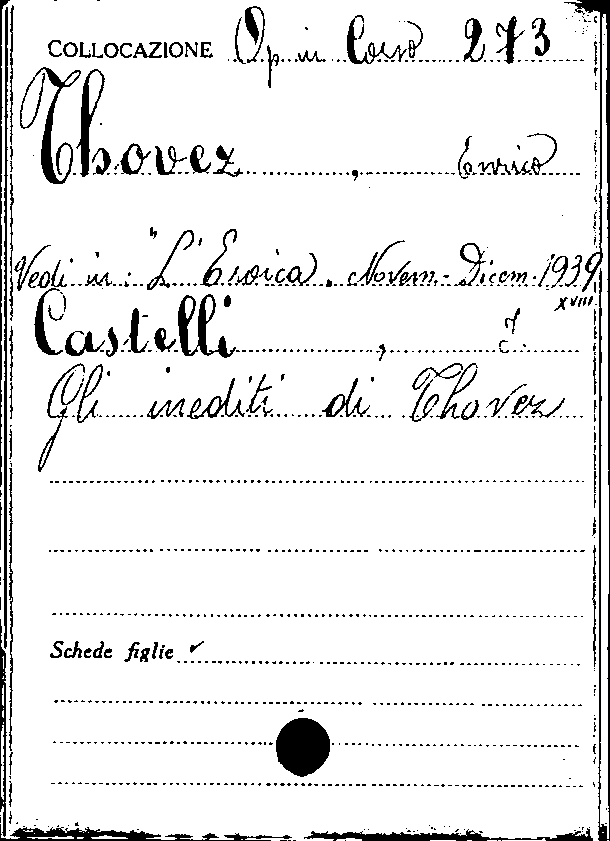 COLLOCAZIONE Op in Corso 273
Thovez, Enrico
Vedi in: "L'Eroica. Novem.-Dicem. 1939
XVIII
Castelli, J.
Gli inediti di Thovez
Schede figlie ✓